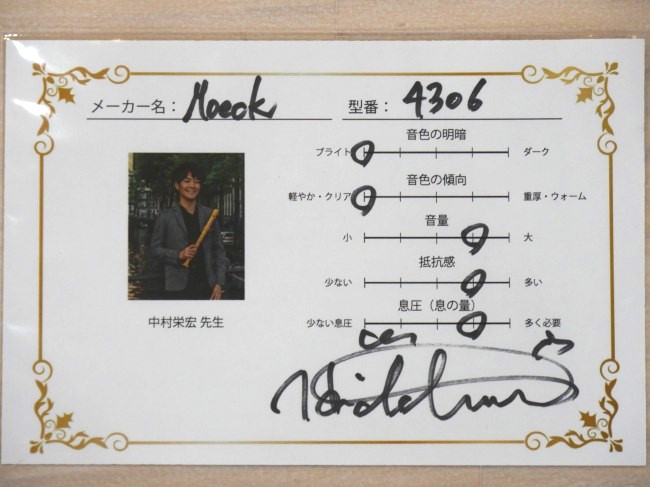 メーカー名： Moeck 型番： 4306
音色の明暗
ブライト ダーク
音色の傾向
軽やか・クリア 重厚・ウォーム
音量
小 大
抵抗感
少ない 多い
息圧（息の量）
少ない息圧 多く必要
中村栄宏 先生